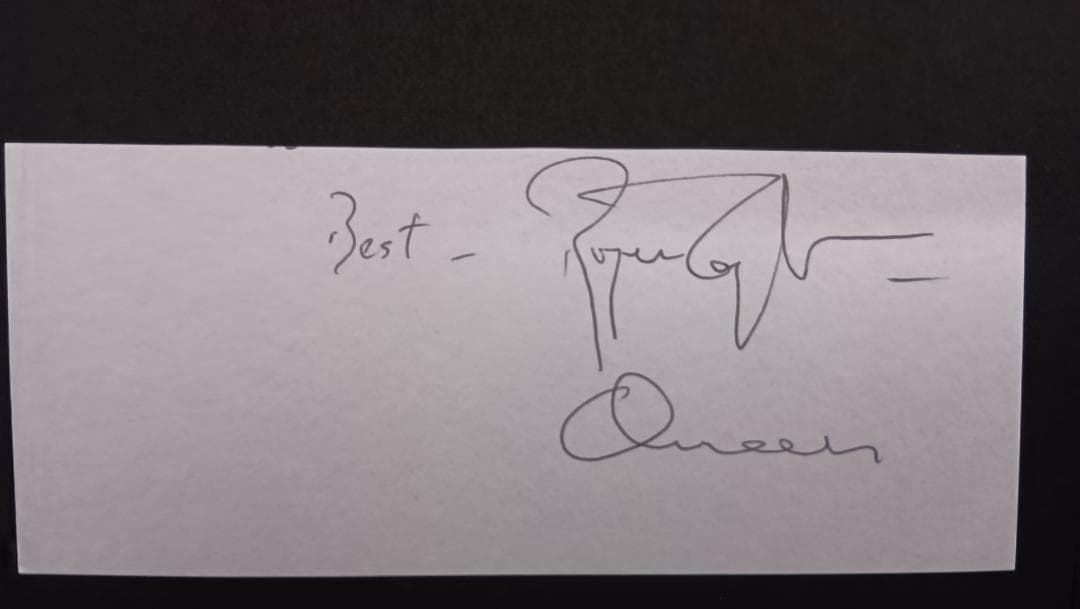 Best - Roger Taylor
Queen